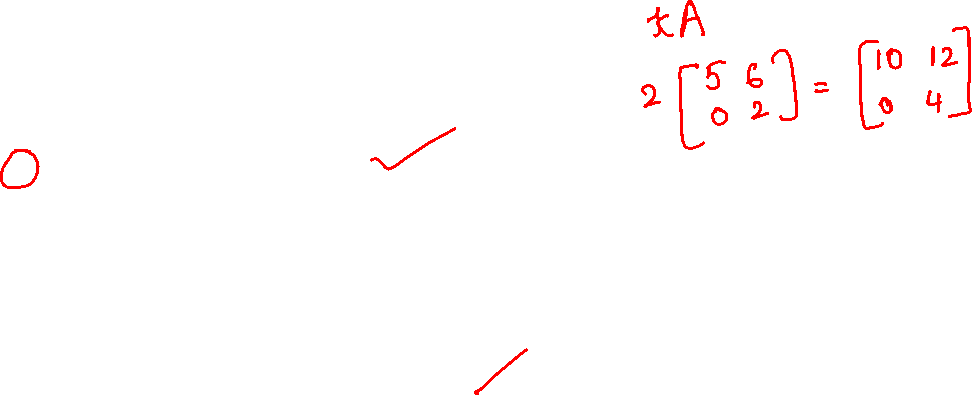 tA
2 [5 6 0 2] = [10 12 0 4]